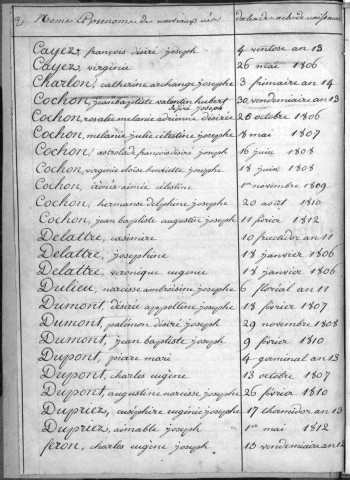 2) Noms Et Prenoms de nouveaux nés | date de acte de naissance
Cayez, françois désiré joseph | 4 ventose an 13
Cayez, virginie | 26 mai 1806
Charlon, catherine archange josephe | 3 frimaire an 14
Cochon, jean baptiste valentin hubert | 30 vendemiaire an 13
désiré joseph
Cochon, rosalie melanie adrienne désirée | 26 octobre 1806
Cochon, melanie julie célestine josephe | 8 mai 1807
Cochon, astrolade françois désiré joseph | 16 juin 1808
Cochon, virginie eloïse henriette josephe | 18 juin 1808
Cochon, irénée aimée celestine | 1er novembre 1809
Cochon, hermance delphine josephe | 20 août 1810
Cochon, jean baptiste augustin joseph | 11 fevrier 1812
Delattre, casimire | 10 fructidor an 11
Delattre, josephine | 18 janvier 1806
Delattre, veronique eugenie | 18 janvier 1806
Dulieu, narcisse ambroisine josephe | 6 florial an 11
Dumont, désirée appolline josephe | 18 février 1807
Dumont, palémon désiré joseph | 29 novembre 1808
Dumont, jean baptiste joseph | 9 février 1810
Dupont, piare mari | 4 germinal an 13
Dupont, charles eugène | 13 octobre 1807
Dupont, augustine narcisse josephe | 26 février 1810
Dupriez, eusiphire eugénie josephe | 17 thermidor an 13
Dupriez, aimable joseph | 1er mai 1812
feron, charles eugène joseph | 15 vendemiaire an 12